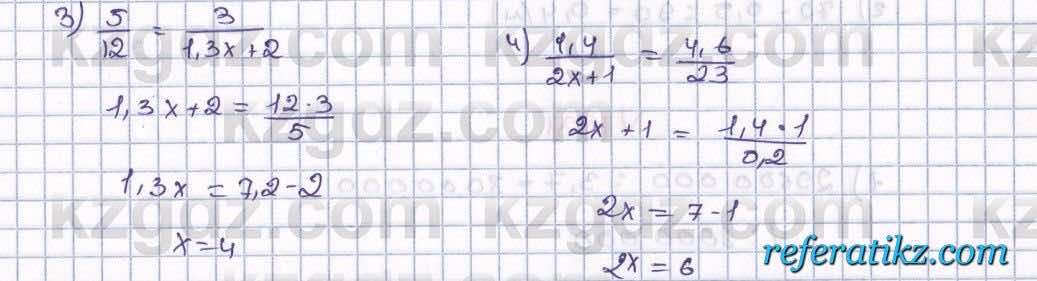 3) 5/12 = 3/(1,3x+2)
1,3x+2 = (12·3)/5
1,3x = 7,2-2
x=4
4) 1,4/(2x+1) = 4,6/23
2x+1 = (1,4·1)/0,2
2x = 7-1
2x = 6
kzgdz.com
referatikz.com